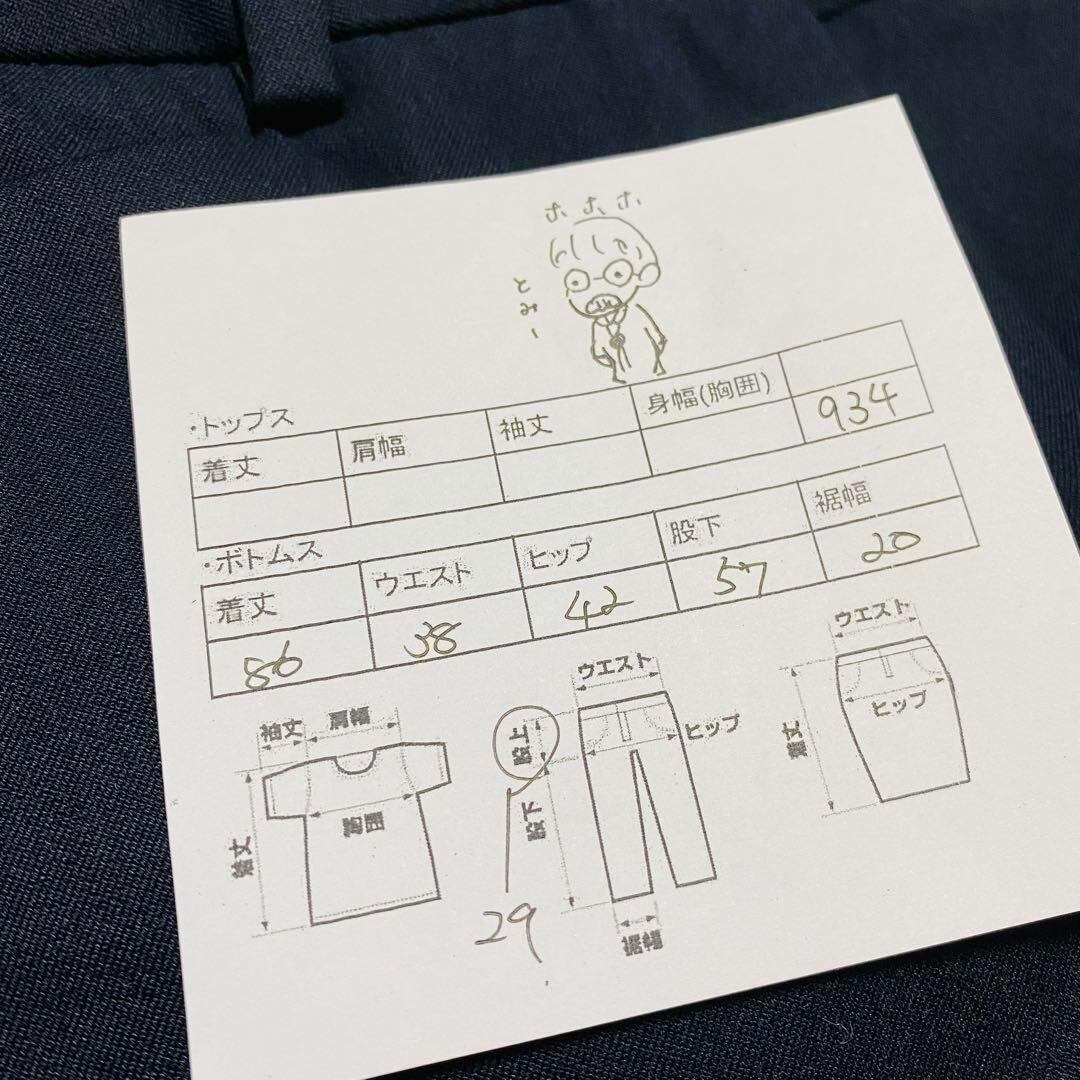 ホ、ホ、ホ、
とみー
・トップス
着丈 肩幅 袖丈 身幅(胸囲)
934
・ボトムス
着丈 ウエスト ヒップ 股下 裾幅
86 38 42 57 20
袖丈 肩幅
着丈
胸囲
ウエスト
股上
ヒップ
股下
29
裾幅
ウエスト
ヒップ
着丈